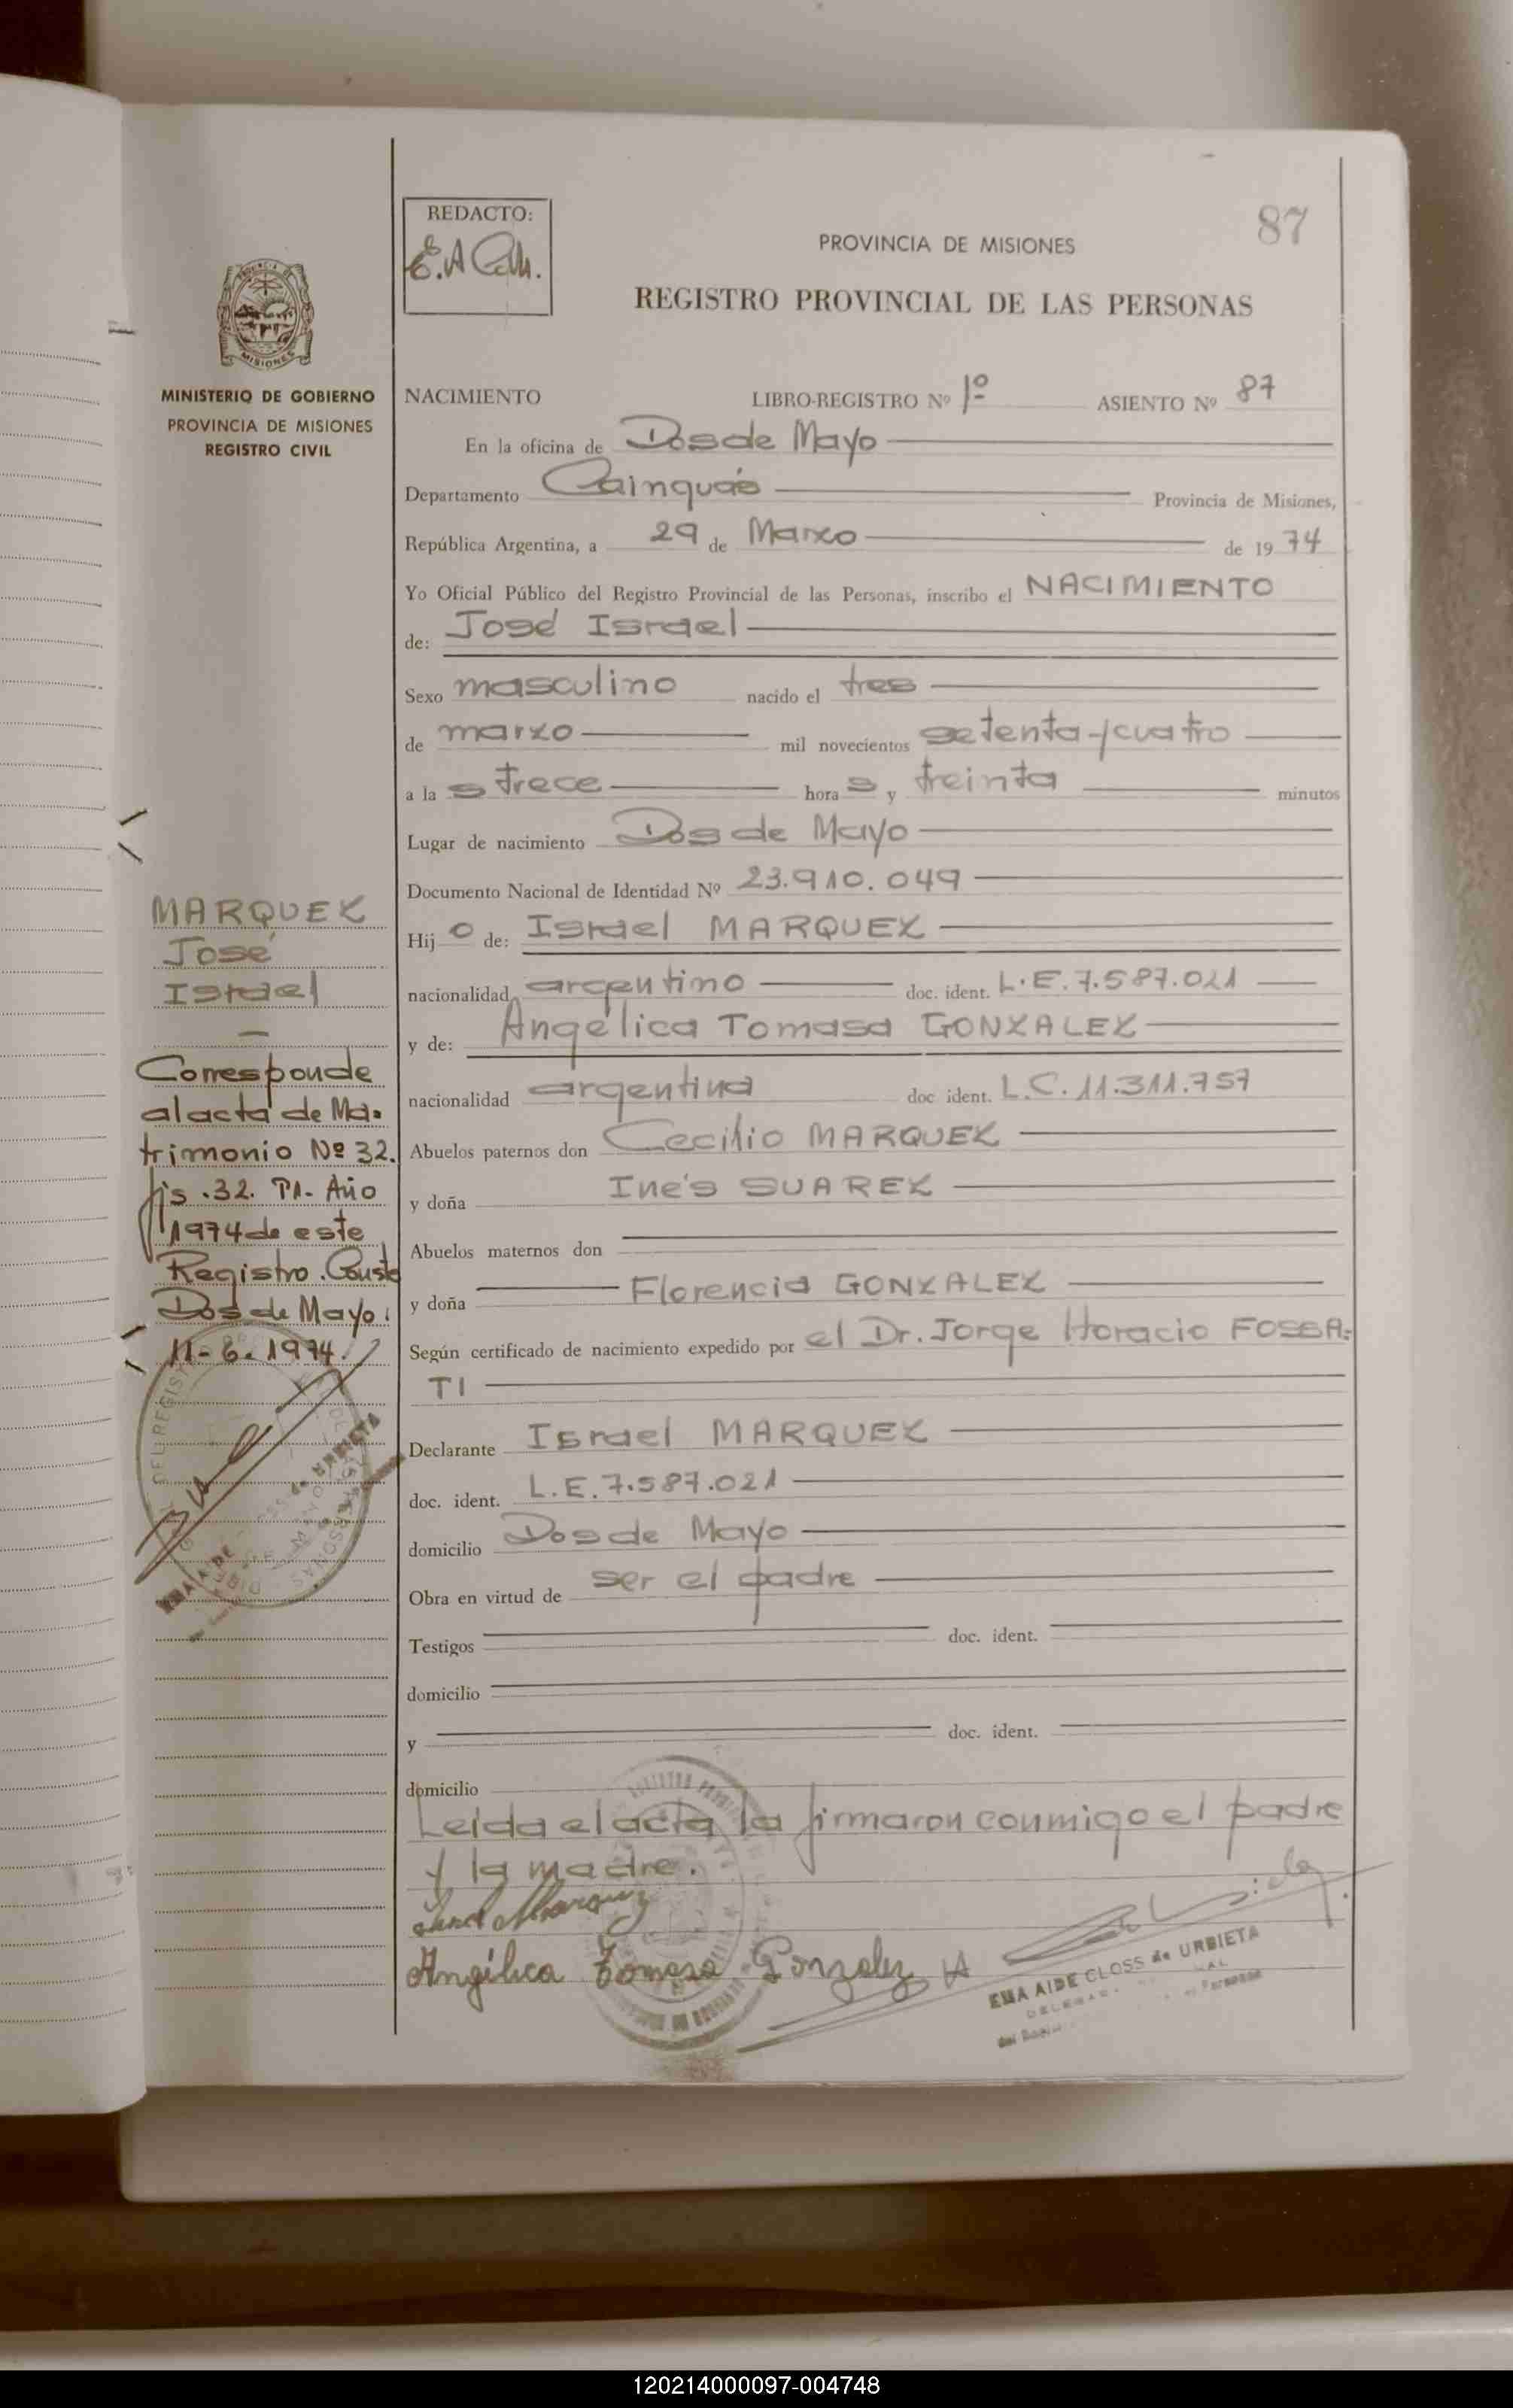 87
REDACTO:
PROVINCIA DE MISIONES
REGISTRO PROVINCIAL DE LAS PERSONAS
MISIONES
MINISTERIO DE GOBIERNO
PROVINCIA DE MISIONES
REGISTRO CIVIL
NACIMIENTO LIBRO-REGISTRO Nº 1º ASIENTO Nº 87
En la oficina de Dos de Mayo
Departamento Cainguás Provincia de Misiones,
República Argentina, a 29 de Marzo de 1974
Yo Oficial Público del Registro Provincial de las Personas, inscribo el NACIMIENTO
de: José Israel
Sexo masculino nacido el tres
de marzo mil novecientos setenta y cuatro
a las trece horas y treinta minutos
Lugar de nacimiento Dos de Mayo
Documento Nacional de Identidad Nº 23.910.049
Hijo de: Israel MARQUEZ
nacionalidad argentino doc. ident. L.E. 7.587.021
y de: Angélica Tomasa GONZALEZ
nacionalidad argentina doc ident. L.C. 11.311.757
Abuelos paternos don Cecilio MARQUEZ
y doña Inés SUAREZ
Abuelos maternos don
y doña Florencia GONZALEZ
Según certificado de nacimiento expedido por el Dr. Jorge Horacio FOSSA-
TI
Declarante Israel MARQUEZ
doc. ident. L.E. 7.587.021
domicilio Dos de Mayo
Obra en virtud de ser el padre
Testigos doc. ident.
domicilio
y doc. ident.
domicilio
Leida el acta la firmaron conmigo el padre
y la madre.
Angélica Tomasa Gonzalez
EMA AIDE CLOSS de URBIETA
MARQUEZ
José
Israel
Corresponde
al acta de Ma-
trimonio Nº 32.
fs. 32. Tº1- Año
1974 de este
Registro. Conste
Dos de Mayo:
11-6-1974.
120214000097-004748